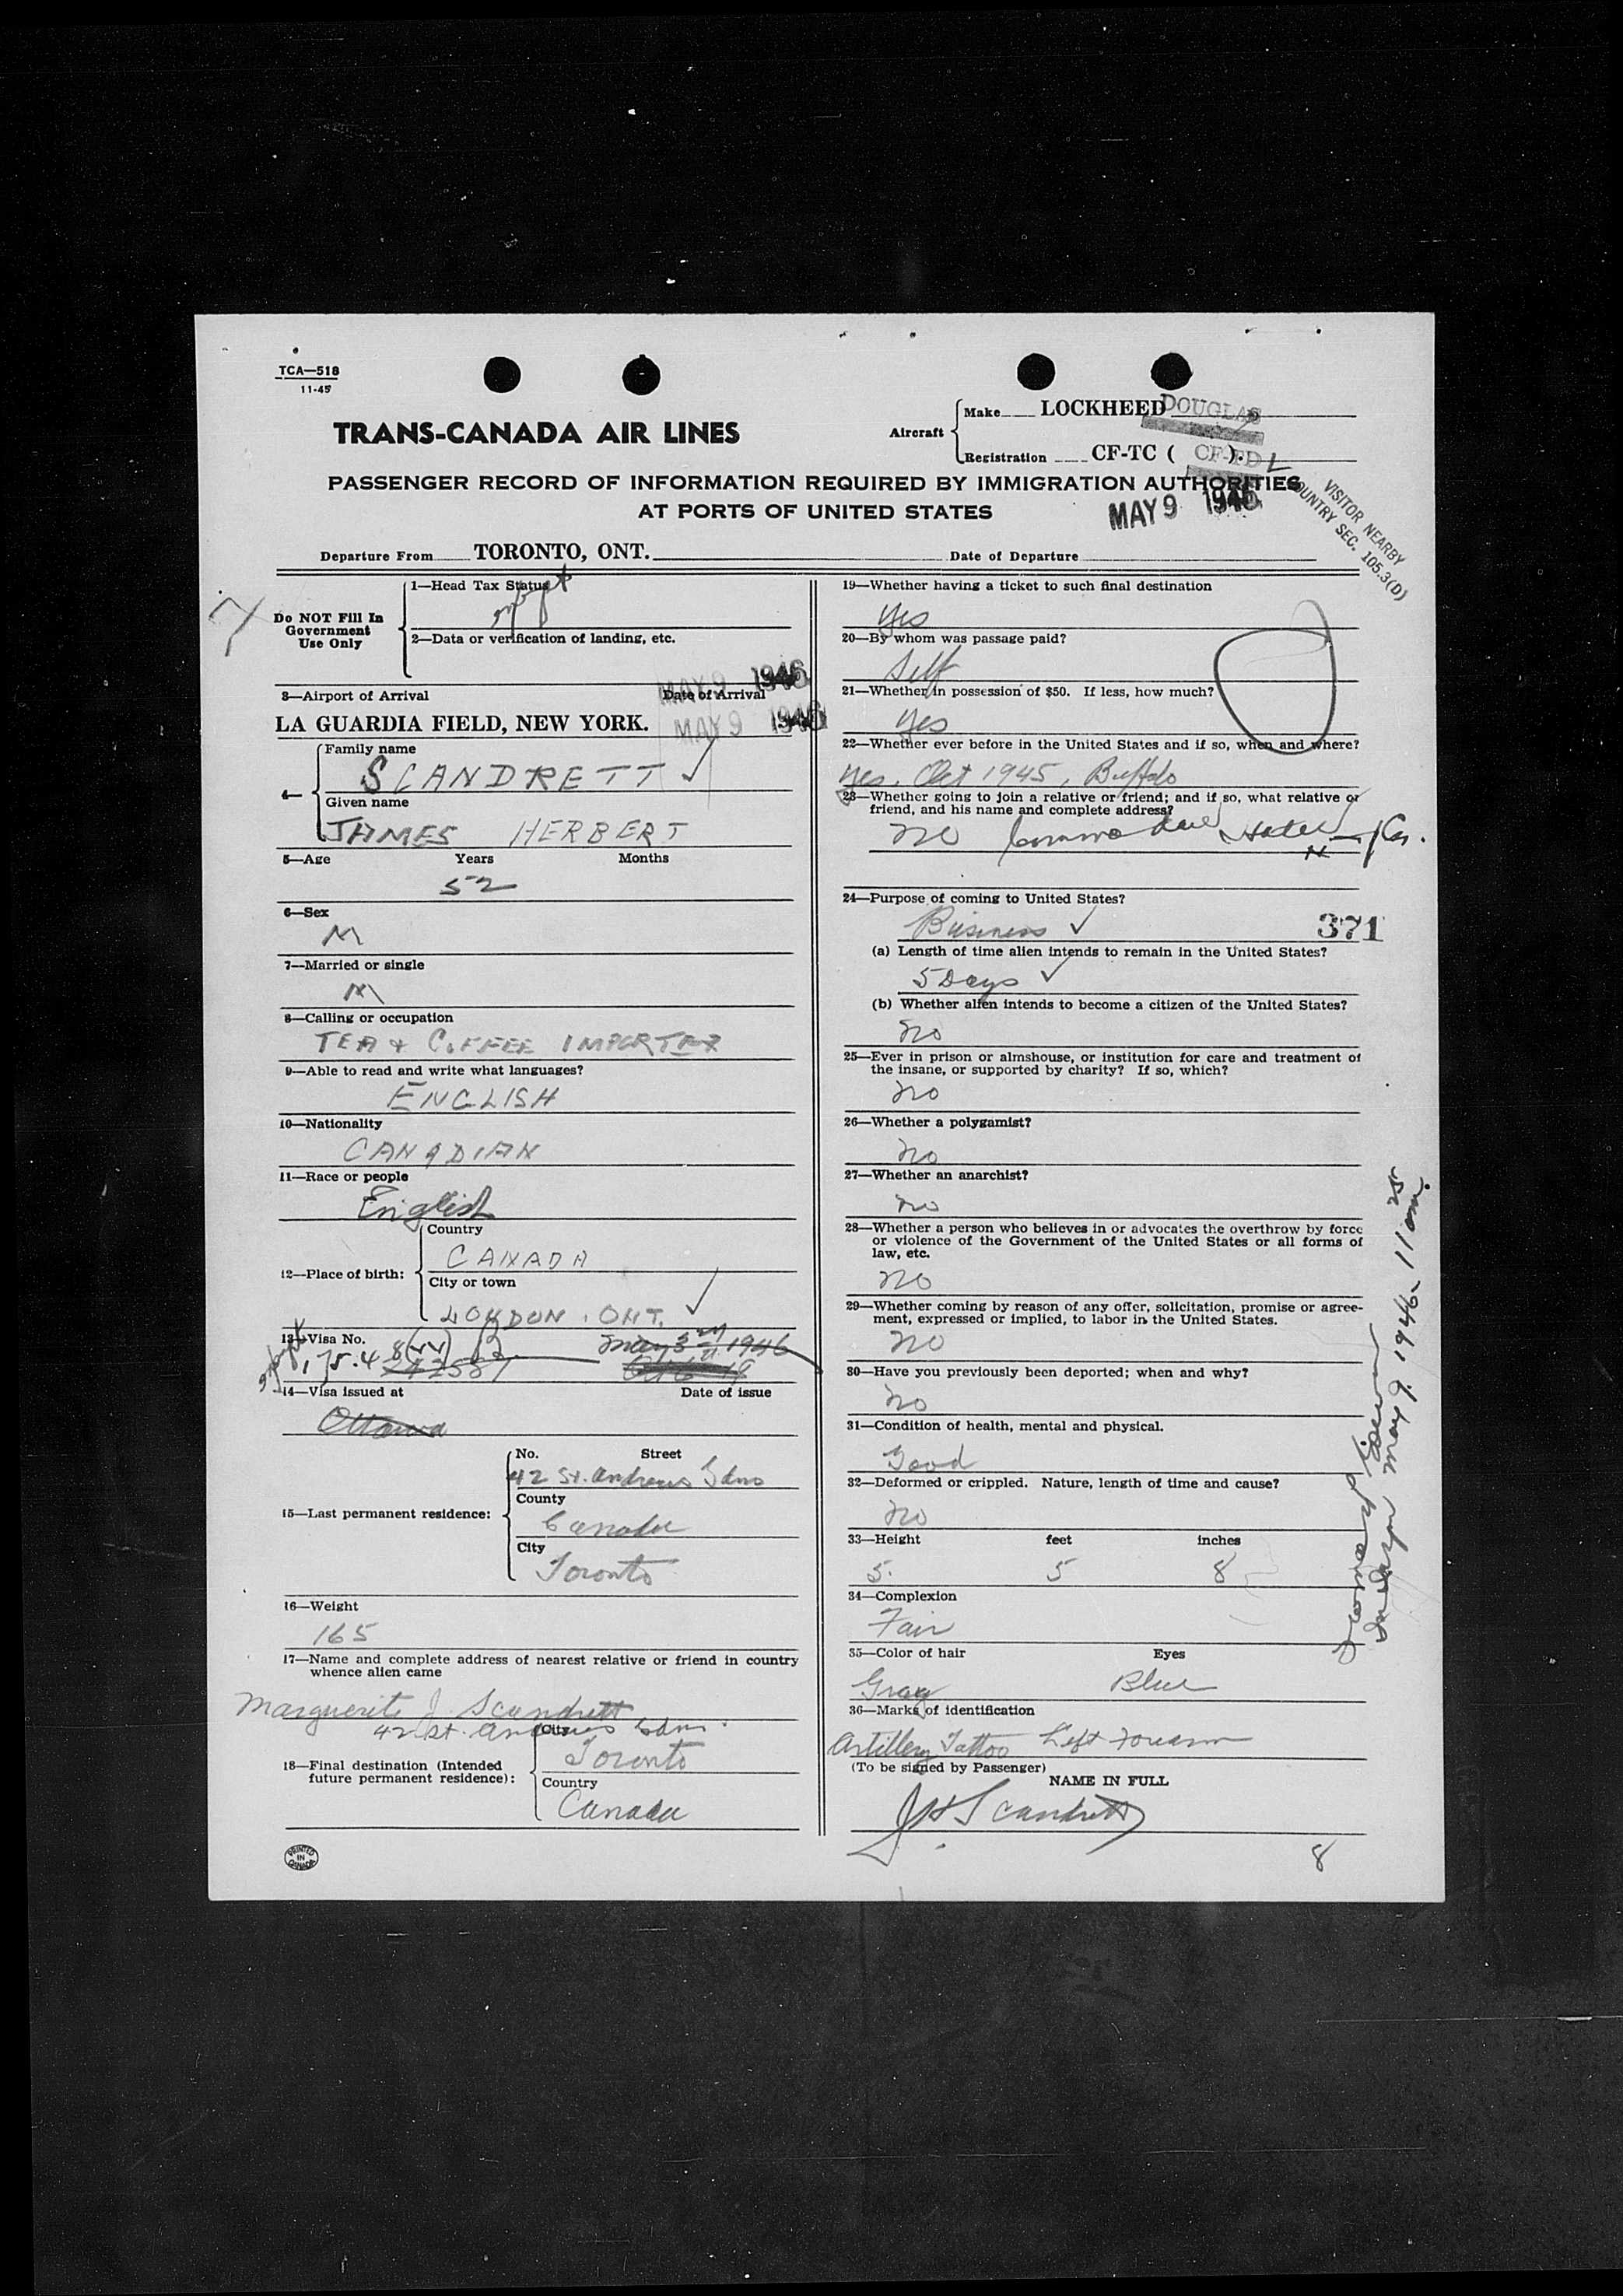 TCA—518
11-45
TRANS-CANADA AIR LINES
Aircraft
Make LOCKHEED DOUGLAS
Registration CF-TC ( ). CF-TD L
PASSENGER RECORD OF INFORMATION REQUIRED BY IMMIGRATION AUTHORITIES
AT PORTS OF UNITED STATES
MAY 9 1946
VISITOR NEARBY
COUNTRY SEC. 105.3(D)
Departure From TORONTO, ONT. Date of Departure
Do NOT Fill In
Government
Use Only
1—Head Tax Status
2—Data or verification of landing, etc.
3—Airport of Arrival Date of Arrival
MAY 9 1946
LA GUARDIA FIELD, NEW YORK. MAY 9 1946
4—
Family name
SCANDRETT
Given name
JAMES HERBERT
5—Age Years Months
52
6—Sex
M
7—Married or single
M
8—Calling or occupation
TEA + COFFEE IMPORTER
9—Able to read and write what languages?
ENGLISH
10—Nationality
CANADIAN
11—Race or people
English
12—Place of birth:
Country
CANADA
City or town
LONDON. ONT.
13—Visa No.
175.48 May 3 1946
242587
14—Visa issued at Date of issue
Ottawa
15—Last permanent residence:
No. Street
42 St. Andrews Gdns
County
Canada
City
Toronto
16—Weight
165
17—Name and complete address of nearest relative or friend in country
whence alien came
Marguerite J. Scandrett
42 St. Andrews Gdns.
18—Final destination (Intended
future permanent residence):
City
Toronto
Country
Canada
PRINTED
IN
CANADA
19—Whether having a ticket to such final destination
Yes
20—By whom was passage paid?
Self
21—Whether in possession of $50. If less, how much?
Yes
22—Whether ever before in the United States and if so, when and where?
Yes. Oct 1945, Buffalo
23—Whether going to join a relative or friend; and if so, what relative or
friend, and his name and complete address?
No Commodore Hotel
24—Purpose of coming to United States?
Business 371
(a) Length of time alien intends to remain in the United States?
5 Days
(b) Whether alien intends to become a citizen of the United States?
No
25—Ever in prison or almshouse, or institution for care and treatment of
the insane, or supported by charity? If so, which?
No
26—Whether a polygamist?
No
27—Whether an anarchist?
No
28—Whether a person who believes in or advocates the overthrow by force
or violence of the Government of the United States or all forms of
law, etc.
No
29—Whether coming by reason of any offer, solicitation, promise or agree-
ment, expressed or implied, to labor in the United States.
No
30—Have you previously been deported; when and why?
No
31—Condition of health, mental and physical.
Good
32—Deformed or crippled. Nature, length of time and cause?
No
33—Height feet inches
5. 5 8
34—Complexion
Fair
35—Color of hair Eyes
Gray Blue
36—Marks of identification
Artillery Tattoo Left Forearm
(To be signed by Passenger)
NAME IN FULL
J H Scandrett
8
May 9. 1946- 11 25 am.